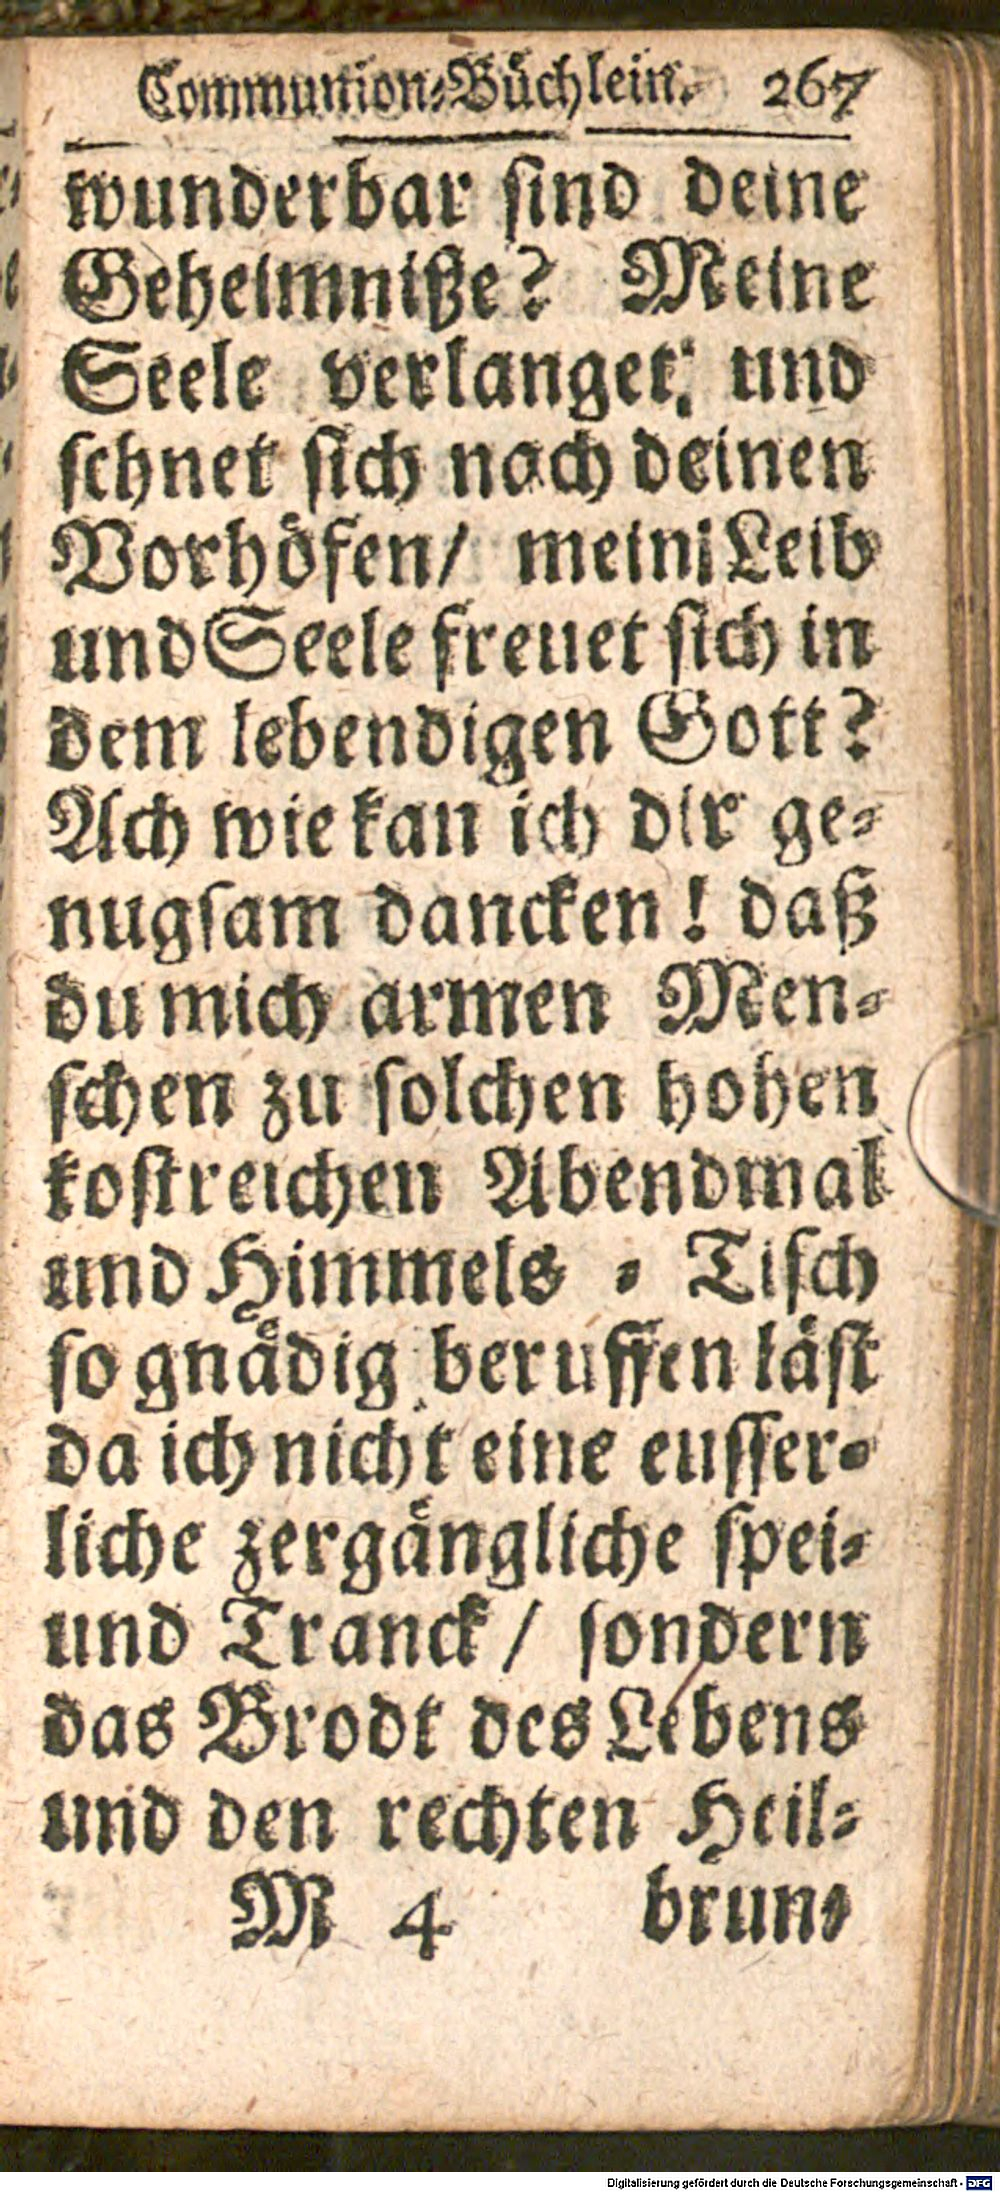 Communion-Büchlein. 267
wunderbar sind deine
Geheimniße? Meine
Seele verlanget: und
sehnet sich nach deinen
Vorhöfen/ mein Leib
und Seele freuet sich in
dem lebendigen Gott?
Ach wie kan ich dir ge-
nugsam dancken! daß
du mich armen Men-
schen zu solchen hohen
kostreichen Abendmal
und Himmels - Tisch
so gnädig beruffen läst
da ich nicht eine eusser-
liche zergängliche spei-
und Tranck/ sondern
das Brodt des Lebens
und den rechten Heil-
M 4 brun-
Digitalisierung gefördert durch die Deutsche Forschungsgemeinschaft - DFG